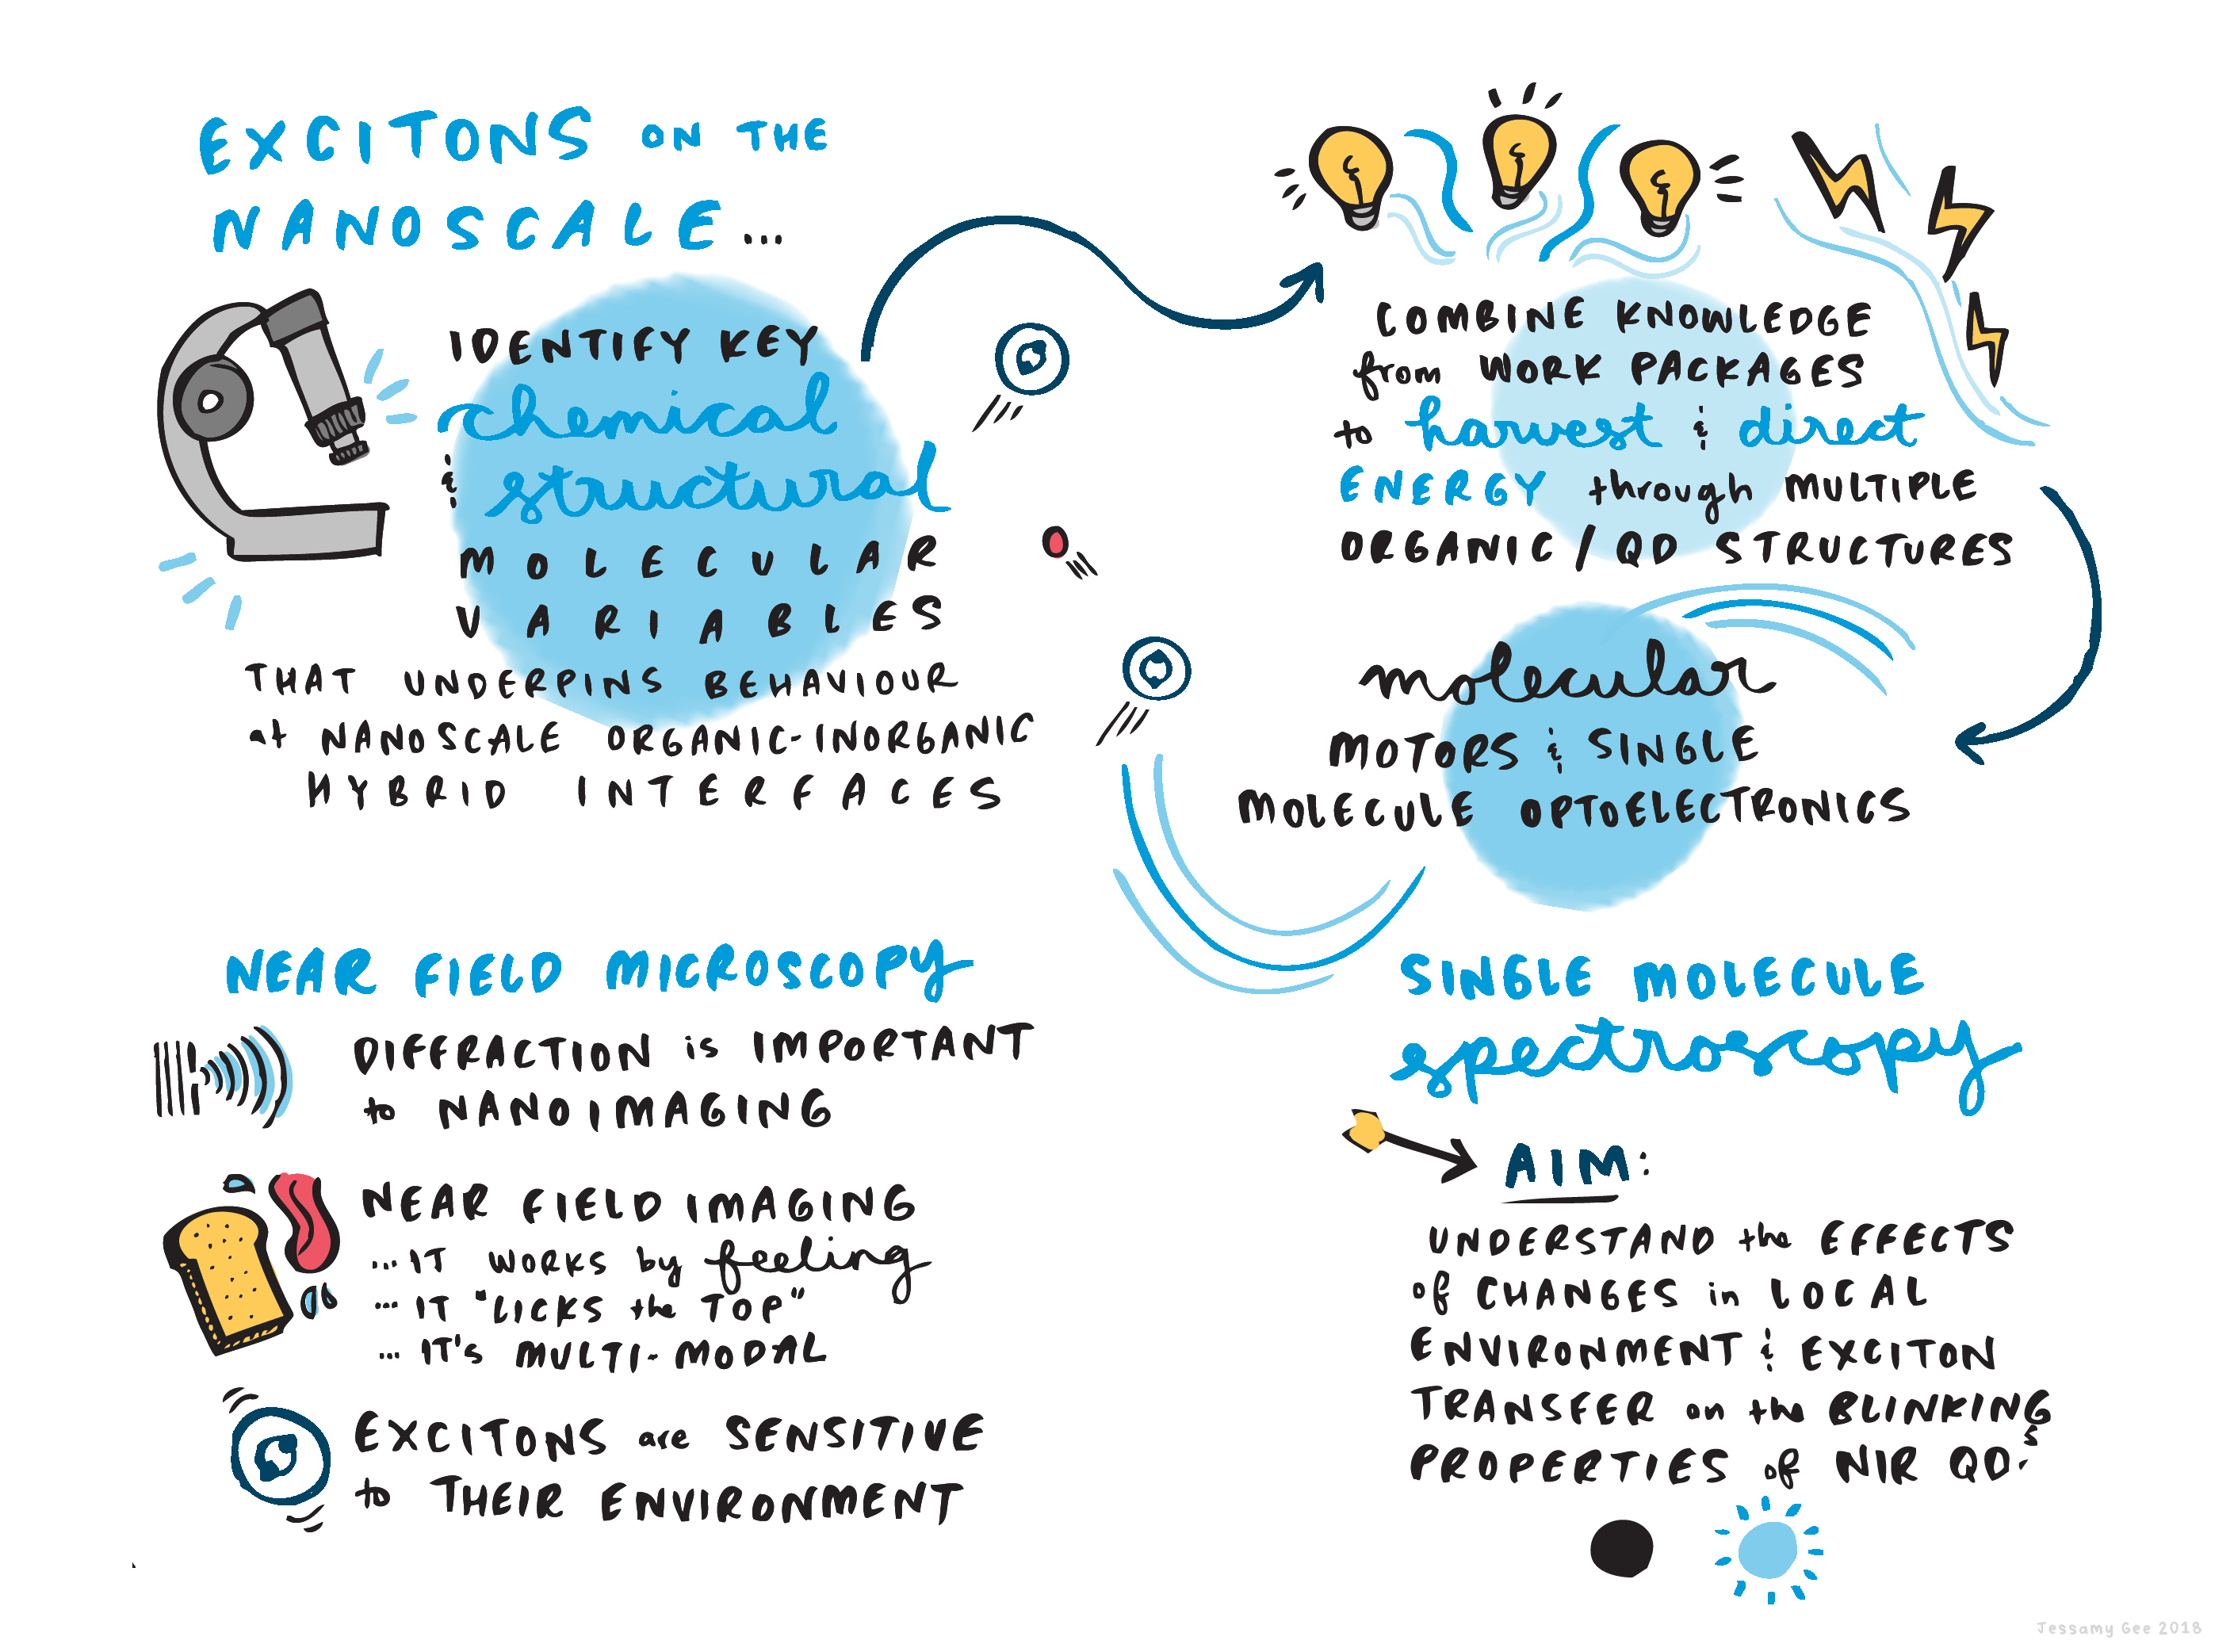 EXCITONS ON THE
NANOSCALE...
IDENTIFY KEY
chemical
& structural
MOLECULAR
VARIABLES
THAT UNDERPINS BEHAVIOUR
at NANOSCALE ORGANIC-INORGANIC
HYBRID INTERFACES
COMBINE KNOWLEDGE
from WORK PACKAGES
to harvest & direct
ENERGY through MULTIPLE
ORGANIC / QD STRUCTURES
molecular
MOTORS & SINGLE
MOLECULE OPTOELECTRONICS
NEAR FIELD MICROSCOPY
DIFFRACTION is IMPORTANT
to NANOIMAGING
NEAR FIELD IMAGING
...IT WORKS by feeling
...IT "LICKS the TOP"
...IT's MULTI-MODAL
EXCITONS are SENSITIVE
to THEIR ENVIRONMENT
SINGLE MOLECULE
spectroscopy
AIM:
UNDERSTAND the EFFECTS
of CHANGES in LOCAL
ENVIRONMENT & EXCITON
TRANSFER on the BLINKING
PROPERTIES of NIR QD's
Jessamy Gee 2018